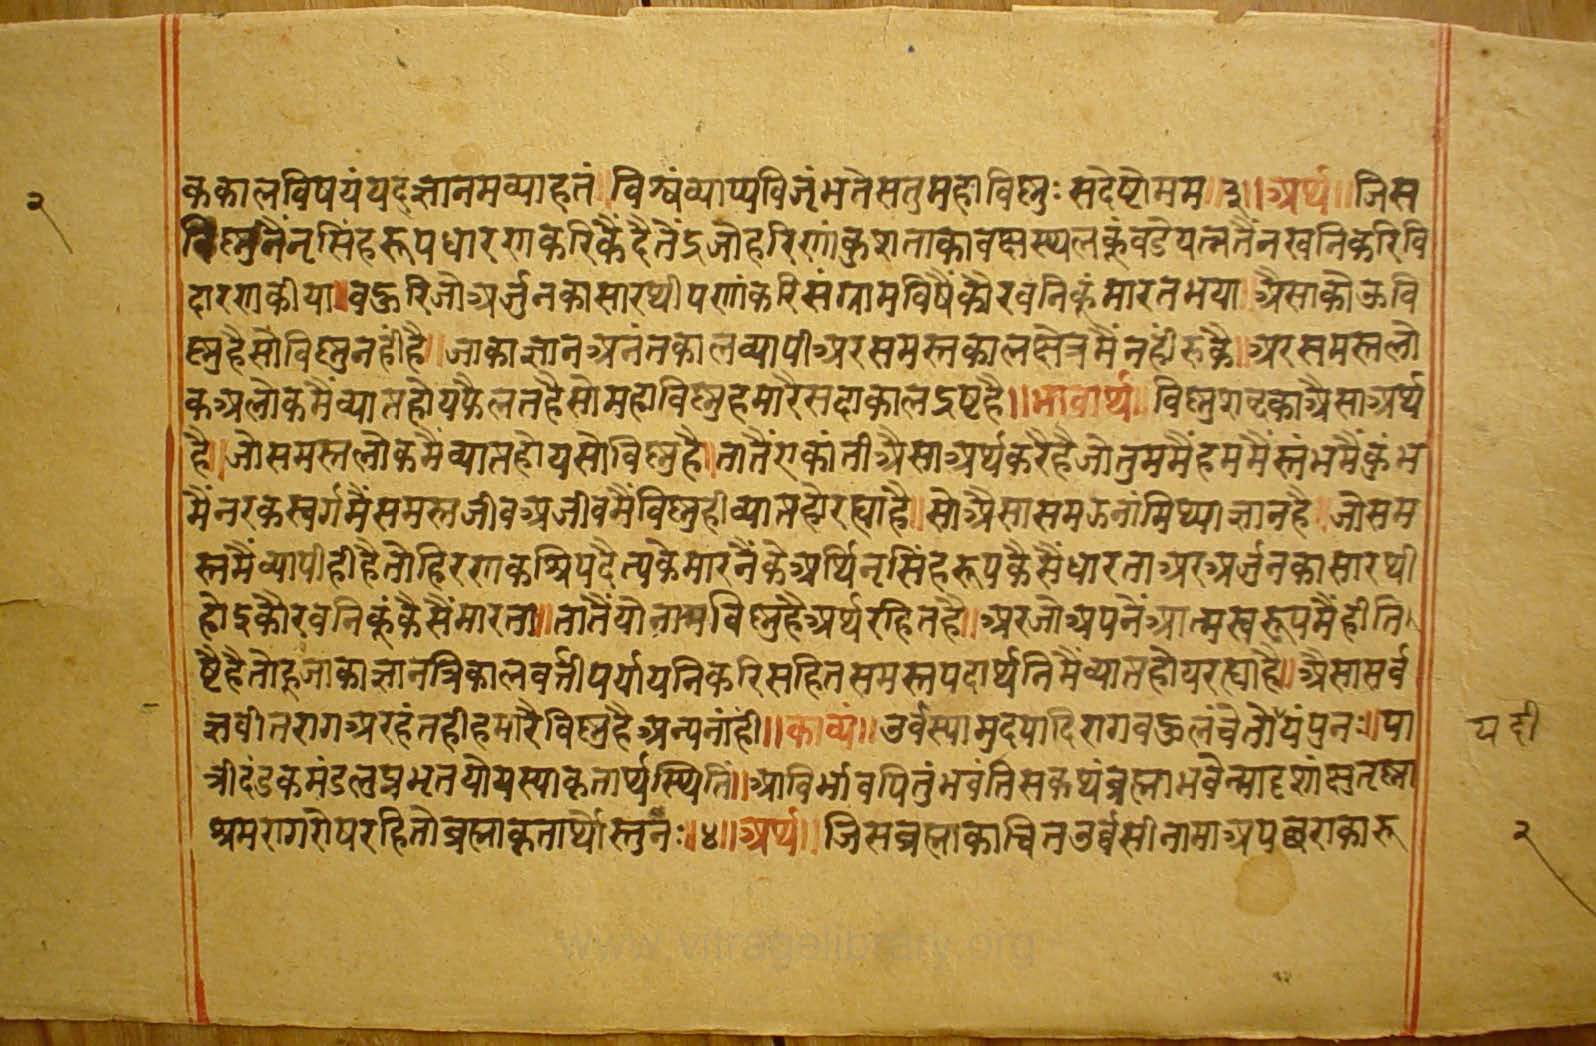 २
ककालविषयंयद्ज्ञानमव्याहतं॥विश्वंव्याप्यविजृंभतेसतुमहाविष्णुःसदेष्टोमम॥३॥अर्थ॥जिस
विष्णुनैंनृसिंहरूपधारणकरिकैंदैतेंद्रजोहरिणांकुशताकावक्षस्थलकूंवडेयत्नतैंनखनिकरिवि
दारणकीया॥वक्तरिजोअर्जुनकासारथीपणांकरिसंग्रामविषैंकौरवनिकूंमारतभया॥अैसाकोऊवि
ष्णुहैसोविष्णुनहींहै॥जाकाज्ञानअनंतकालव्यापीअरसमस्तकालक्षेत्रमैंनहींरुकै॥अरसमस्तलो
कअलोकमैंव्याप्तहोयफैलतहैसोमहाविष्णुहमारैसदाकालइष्टहै॥भावार्थ॥विष्णुशब्दकाअैसाअर्थ
है॥जोसमस्तलोकमैंव्याप्तहोयसोविष्णुहै॥तातैंएकांतीअैसाअर्थकरैहैजोतुममैंहममैंस्तंभमैंकुंभ
मैंनरकस्वर्गमैंसमस्तजीवअजीवमैंविष्णुहीव्याप्तहोरह्याहै॥सोअैसासमऊनांमिथ्याज्ञानहै॥जोसम
स्तमैंव्यापीहीहैतोहिरणकश्यिपदैत्यकेमारनैंकेअर्थिनृसिंहरूपकैसैंधारताअरअर्जुनकासारथी
होइकौरवनिकूंकैसैंमारता॥तातैंयोनामविष्णुहैअर्थरहितहै॥अरजोअपनैंआत्मस्वरूपमैंहीति
ष्टैहैतोहूजाकाज्ञानत्रिकालवर्त्तीपर्यायनिकरिसहितसमस्तपदार्थनिमैंव्याप्तहोयरह्याहै॥अैसासर्व
ज्ञवीतरागअरहंतहीहमारैविष्णुहैअन्यनांहीं॥काव्यं॥उर्वस्यामुदपादिरागवक्तलंचेतोयंपुनः॥पा
त्रीदंडकमंडलुप्रभृतयोयस्याकृतार्थस्थितिं॥आविर्भावयितुंभवंतिसकथंब्रह्माभवेन्मादृशांक्षुतृष्णा
श्रमरागरोषरहितोब्रह्माकृतार्थोस्तुनः॥४॥अर्थ॥जिसब्रह्माकाचितउर्वसीनामाअपछराकारू
यदी
२
www.vitragelibrary.org